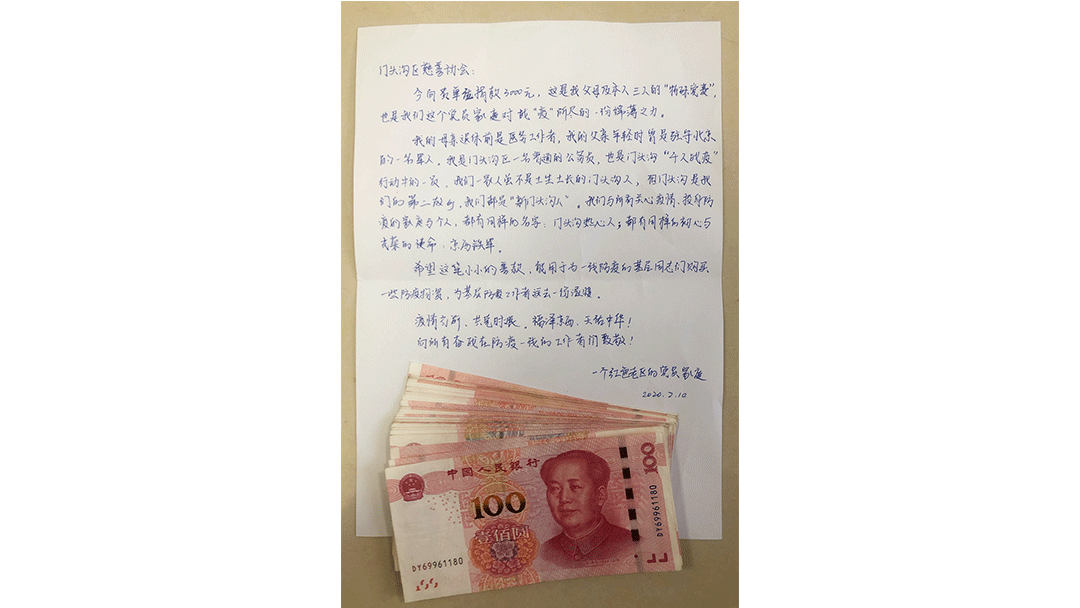 门头沟区慈善协会：
今向贵单位捐款3000元，这是我父母及本人三人的"特殊党费"，
也是我们这个党员家庭对战"疫"所尽的一份绵薄之力。
我的母亲退休前是医务工作者，我的父亲年轻时曾是驻守北京
的一名军人，我是门头沟区一名普通的公务员，也是门头沟"千人战疫"
行动中的一员。我们一家人虽不是土生土长的门头沟人，但门头沟是我
们的第二故乡，我们都是"新门头沟人"。我们与所有关心疫情、投身防
疫的家庭与个人，都有同样的名字：门头沟热心人；都有同样的初心与
的使命：
希望这笔小小的善款，能用于为一线防疫的基层同志们购买
一些防疫物资，为基层防疫工作者送去一份温暖。
疫情当前、共克时艰，福泽京西、天佑中华！
向所有奋战在防疫一线的工作者们致敬！
一个红色老区的党员家庭
2020.2.10
中国人民银行
100
壹佰圆
100
DY69961180
DY69961180